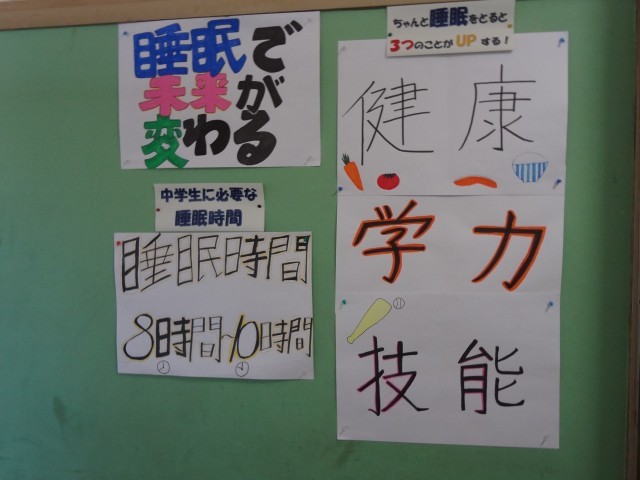 睡眠で
未来が
変わる
中学生に必要な
睡眠時間
睡眠時間
8時間~10時間
ちゃんと睡眠をとると
3つのことがUPする!
健康
学力
技能